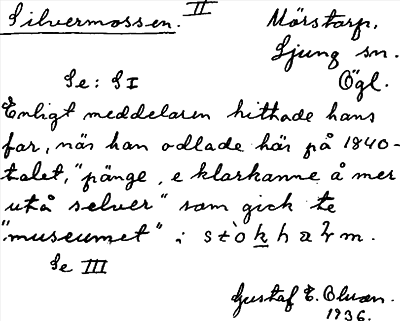 Silvermossen. II
Mörstarp.
Ljung sn.
Ögl.
Se: S I
Enligt meddelaren hittade hans
far, när han odlade här på 1840-
talet, "pänge, e klarkanne å mer
utå selver" som gick te
"museumet" i stòkhalm.
Se III
Gustaf E.
1936.